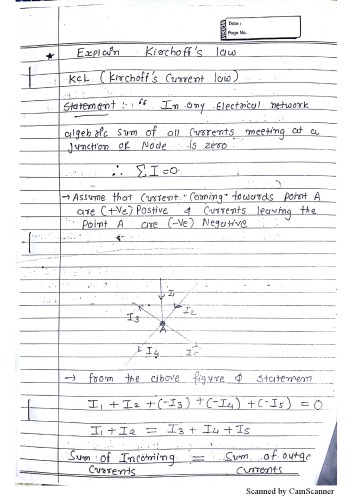 Date :
Page No.
* Explain Kirchoff's law
KCL (Kirchoff's Current law)
Statement :- " In any Electrical network
algebraic sum of all currents meeting at a
junction or Node is zero
∴ ΣI=0
→ Assume that current "Coming" towards point A
are (+Ve) Postive & Currents leaving the
Point A are (-Ve) Negative
I1
I2
I3
A
I4
I5
→ from the above figure & statemen
I1 + I2 + (-I3) + (-I4) + (-I5) = 0
I1 + I2 = I3 + I4 + I5
Sum of Incoming = Sum of outgo
Currents Currents
Scanned by CamScanner